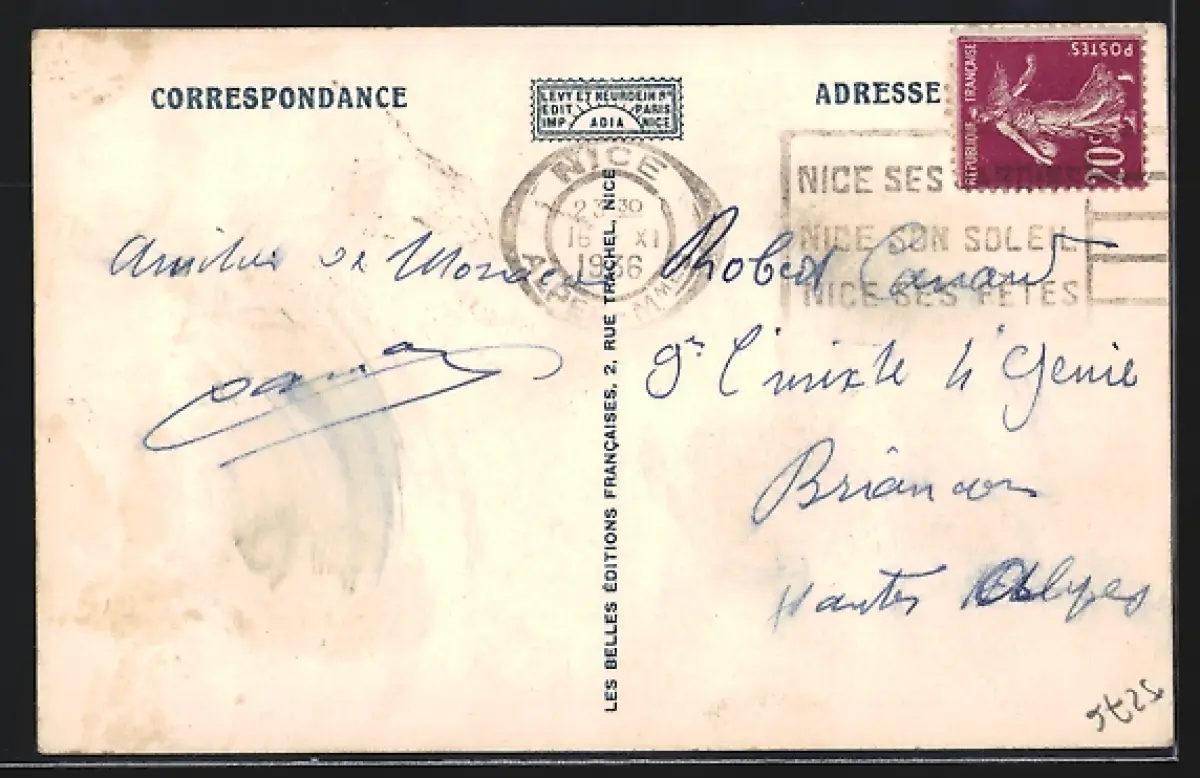 CORRESPONDANCE
LEVY ET NEURDEIN Rs
EDIT PARIS
IMP ADIA NICE
ADRESSE
REPUBLIQUE FRANÇAISE
POSTES
20c
NICE
23 30
16 XI
1936
ALPES MMES
NICE SES JARDINS
NICE SON SOLEIL
NICE SES FÊTES
LES BELLES ÉDITIONS FRANÇAISES, 2, RUE TRACHEL, NICE
de
Robert
mixte Génie
Briançon
Hautes Alpes